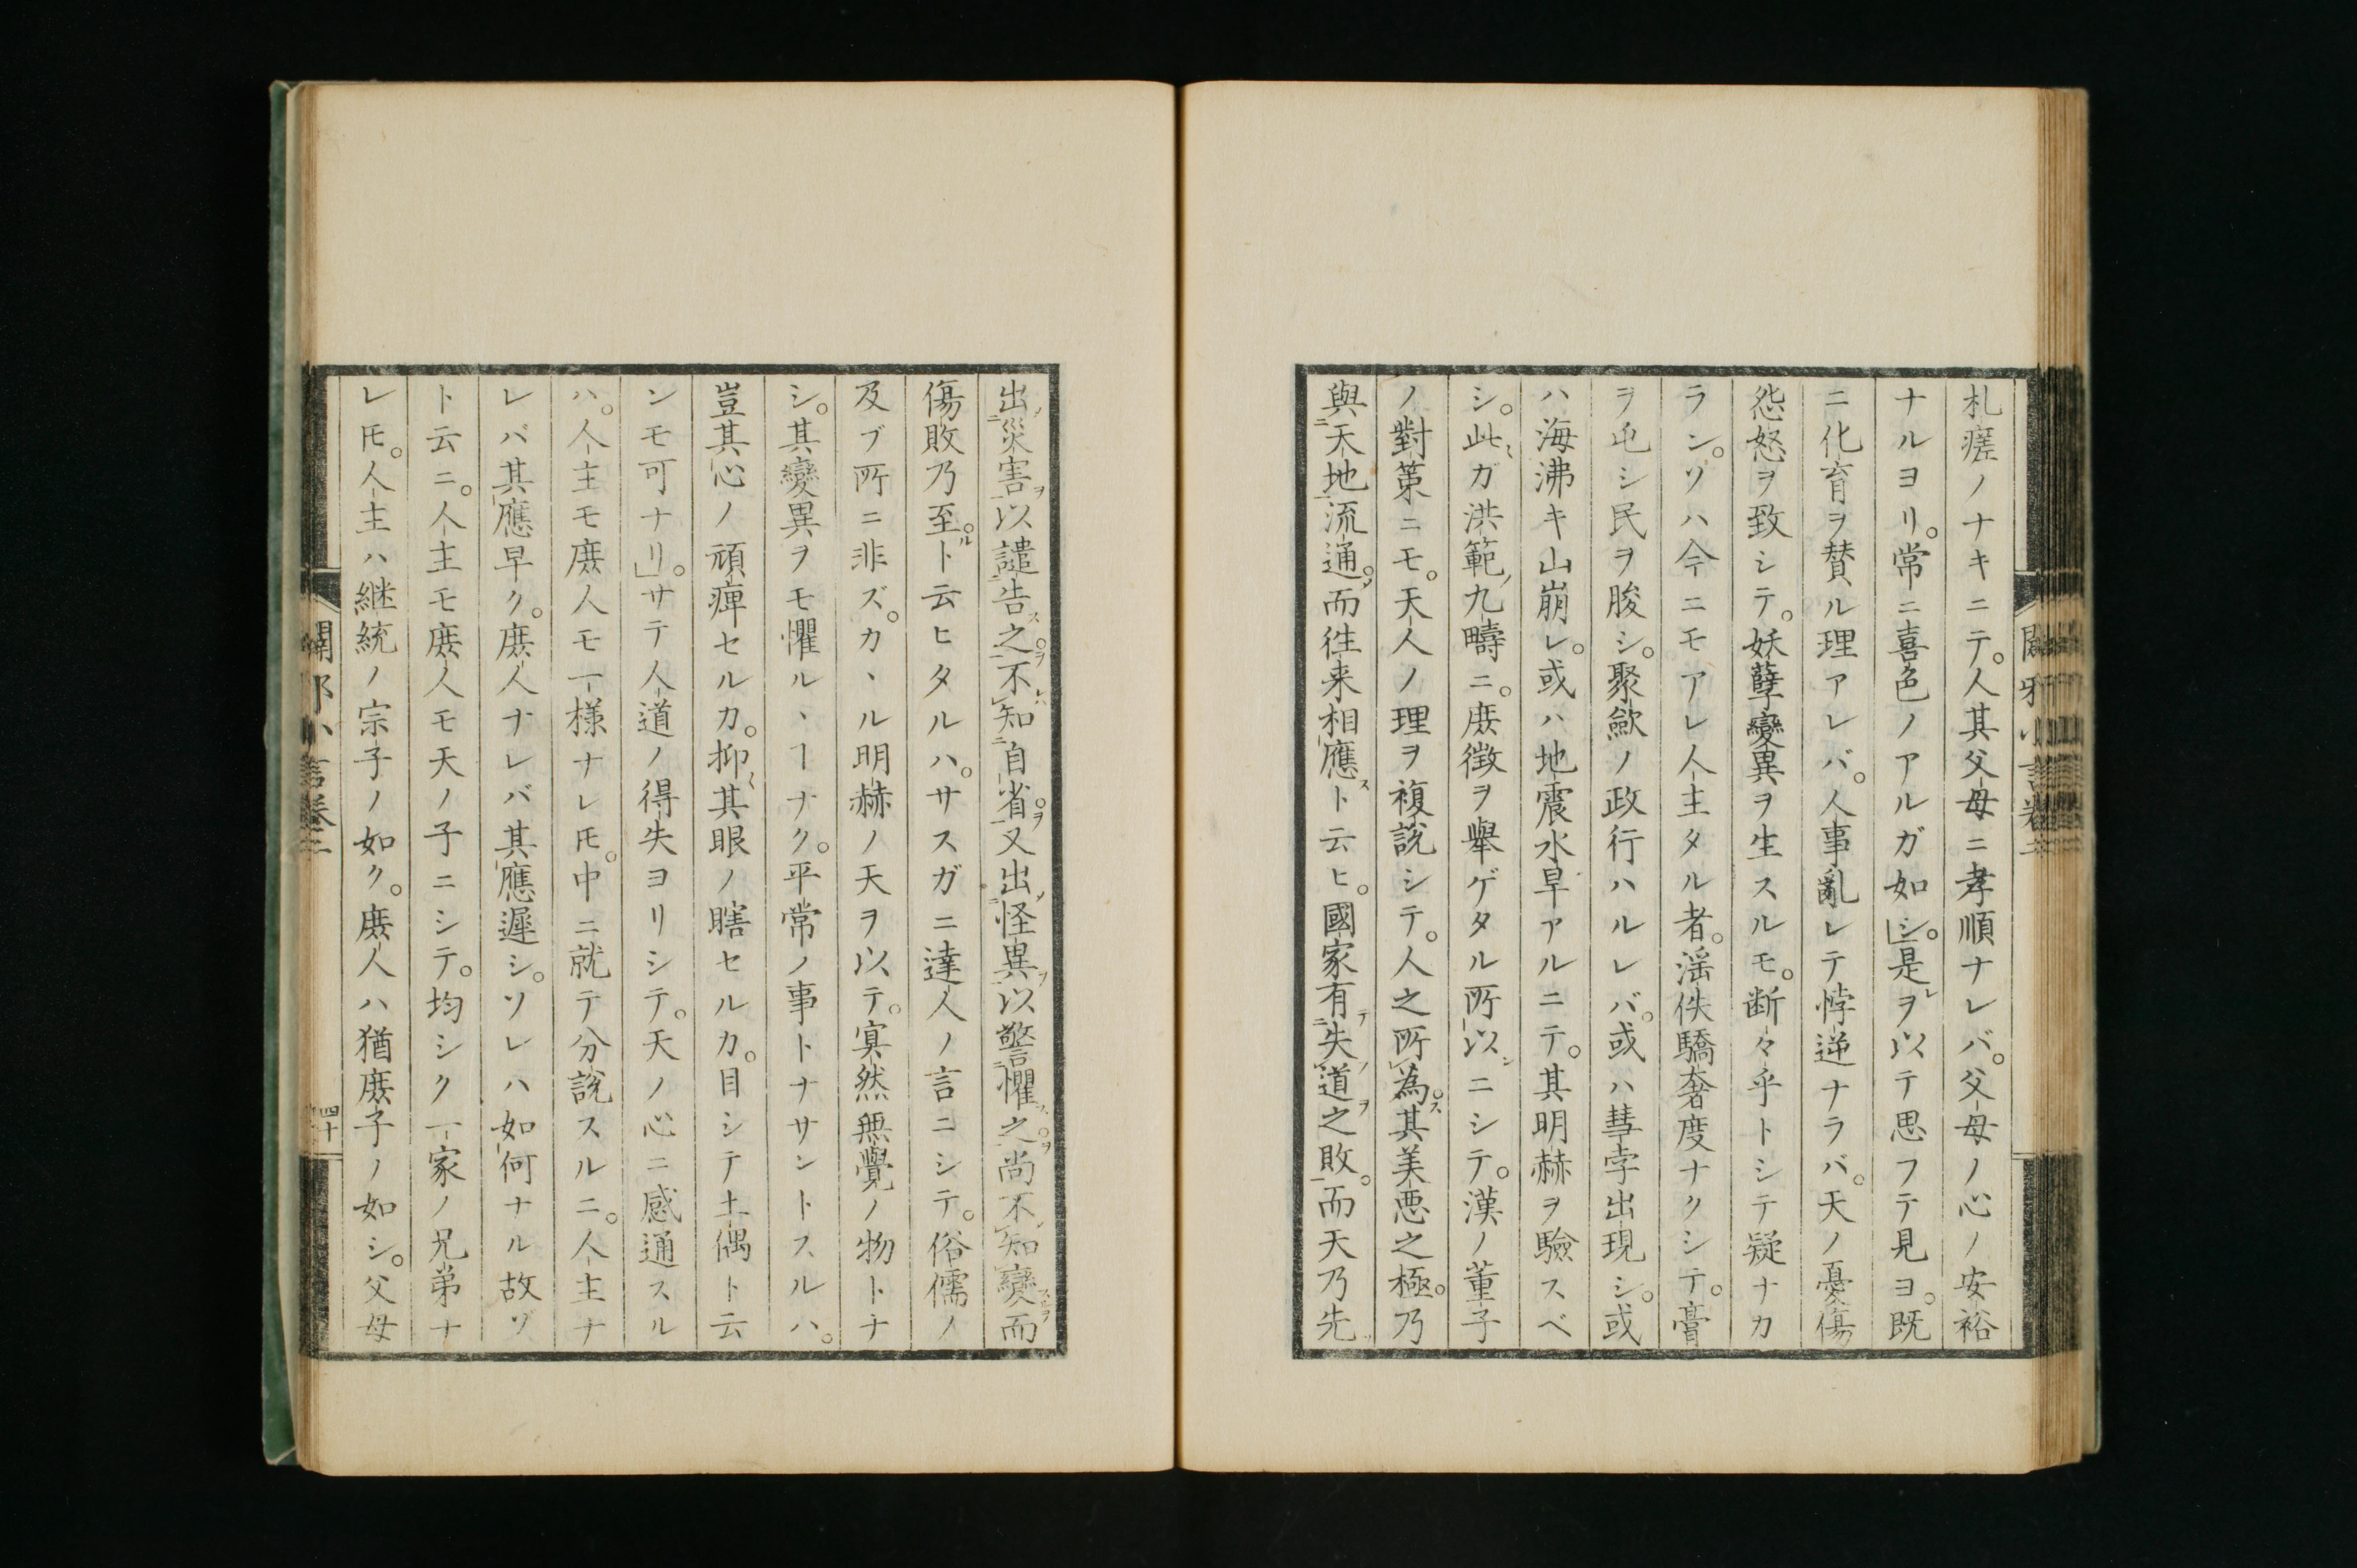 札瘥ノナキニテ。人其父母ニ孝順ナレバ。父母ノ心ノ安裕
ナルヨリ。常ニ喜色ノアルガ如シ。」是ヲ以テ思フテ見ヨ。既
ニ化育ヲ賛ル理アレバ。人事亂レテ悖逆ナラバ。天ノ憂傷
怨怒ヲ致シテ。妖孽變異ヲ生スルモ。断々乎トシテ疑ナカ
ラン。ソハ今ニモアレ人主タル者。滛佚驕奢度ナクシテ。膏
ヲ屯シ民ヲ朘シ。聚歛ノ政行ハルレバ。或ハ彗孛出現シ。或
ハ海沸キ山崩レ。或ハ地震水旱アルニテ。其明赫ヲ驗スベ
シ。此ガ洪範九疇ニ。庶徴ヲ舉ゲタル所以ニシテ。漢ノ董子
ノ對策ニモ。天人ノ理ヲ複説シテ。人之所為。其美悪之極。乃
與天地流通。而徃来相應ト云ヒ。國家有失道之敗。而天乃先
出災害以譴告之。不知自省。又出怪異以警懼之。尚不知變而
傷敗乃至。ト云ヒタルハ。サスガニ達人ノ言ニシテ。俗儒ノ
及ブ所ニ非ズ。カヽル明赫ノ天ヲ以テ。寞然無覺ノ物トナ
シ。其變異ヲモ懼ルヽヿナク。平常ノ事トナサントスルハ。
豈其心ノ頑痺セルカ。抑其眼ノ瞎セルカ。目シテ土偶ト云
ンモ可ナリ。」サテ人道ノ得失ヨリシテ。天ノ心ニ感通スル
ハ。人主モ庶人モ一様ナレ𪜈。中ニ就テ分説スルニ。人主ナ
レバ其應早ク。庶人ナレバ其應遲シ。ソレハ如何ナル故ゾ
ト云ニ。人主モ庶人モ天ノ子ニシテ。均シク一家ノ兄弟ナ
レ𪜈。人主ハ継統ノ宗子ノ如ク。庶人ハ猶庶子ノ如シ。父母
闢邪小言巻二
四十